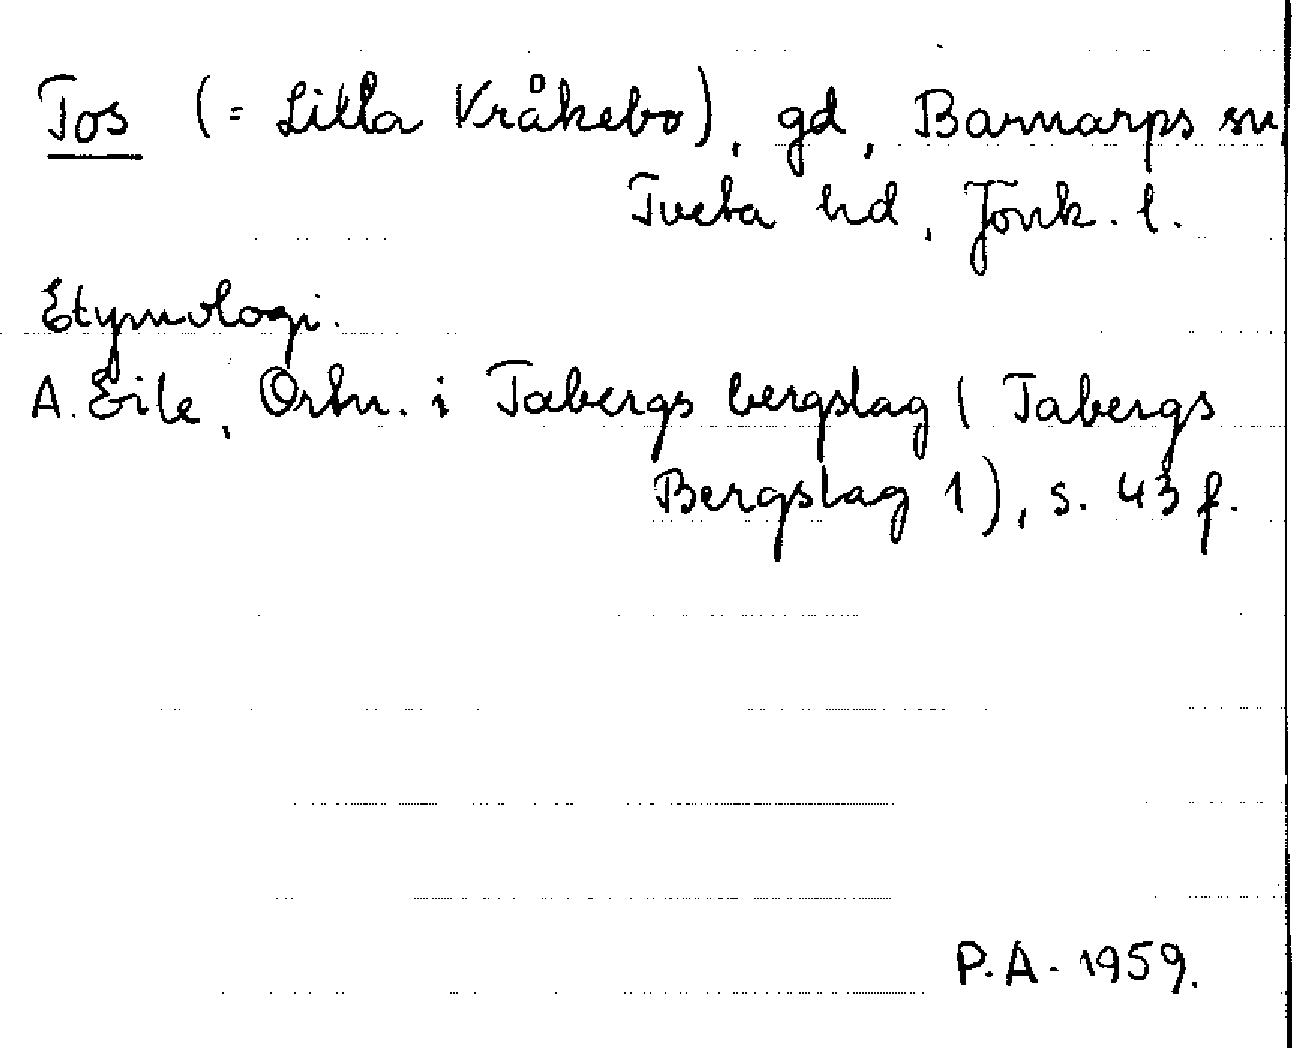 Tos (= Lilla Kråkebo), gd, Barnarps sn,
Tveta hd, Jönk. l.
Etymologi.
A. Eile, Ortn. i Tabergs bergslag (Tabergs
Bergslag 1), s. 43 f.
P.A. 1959.